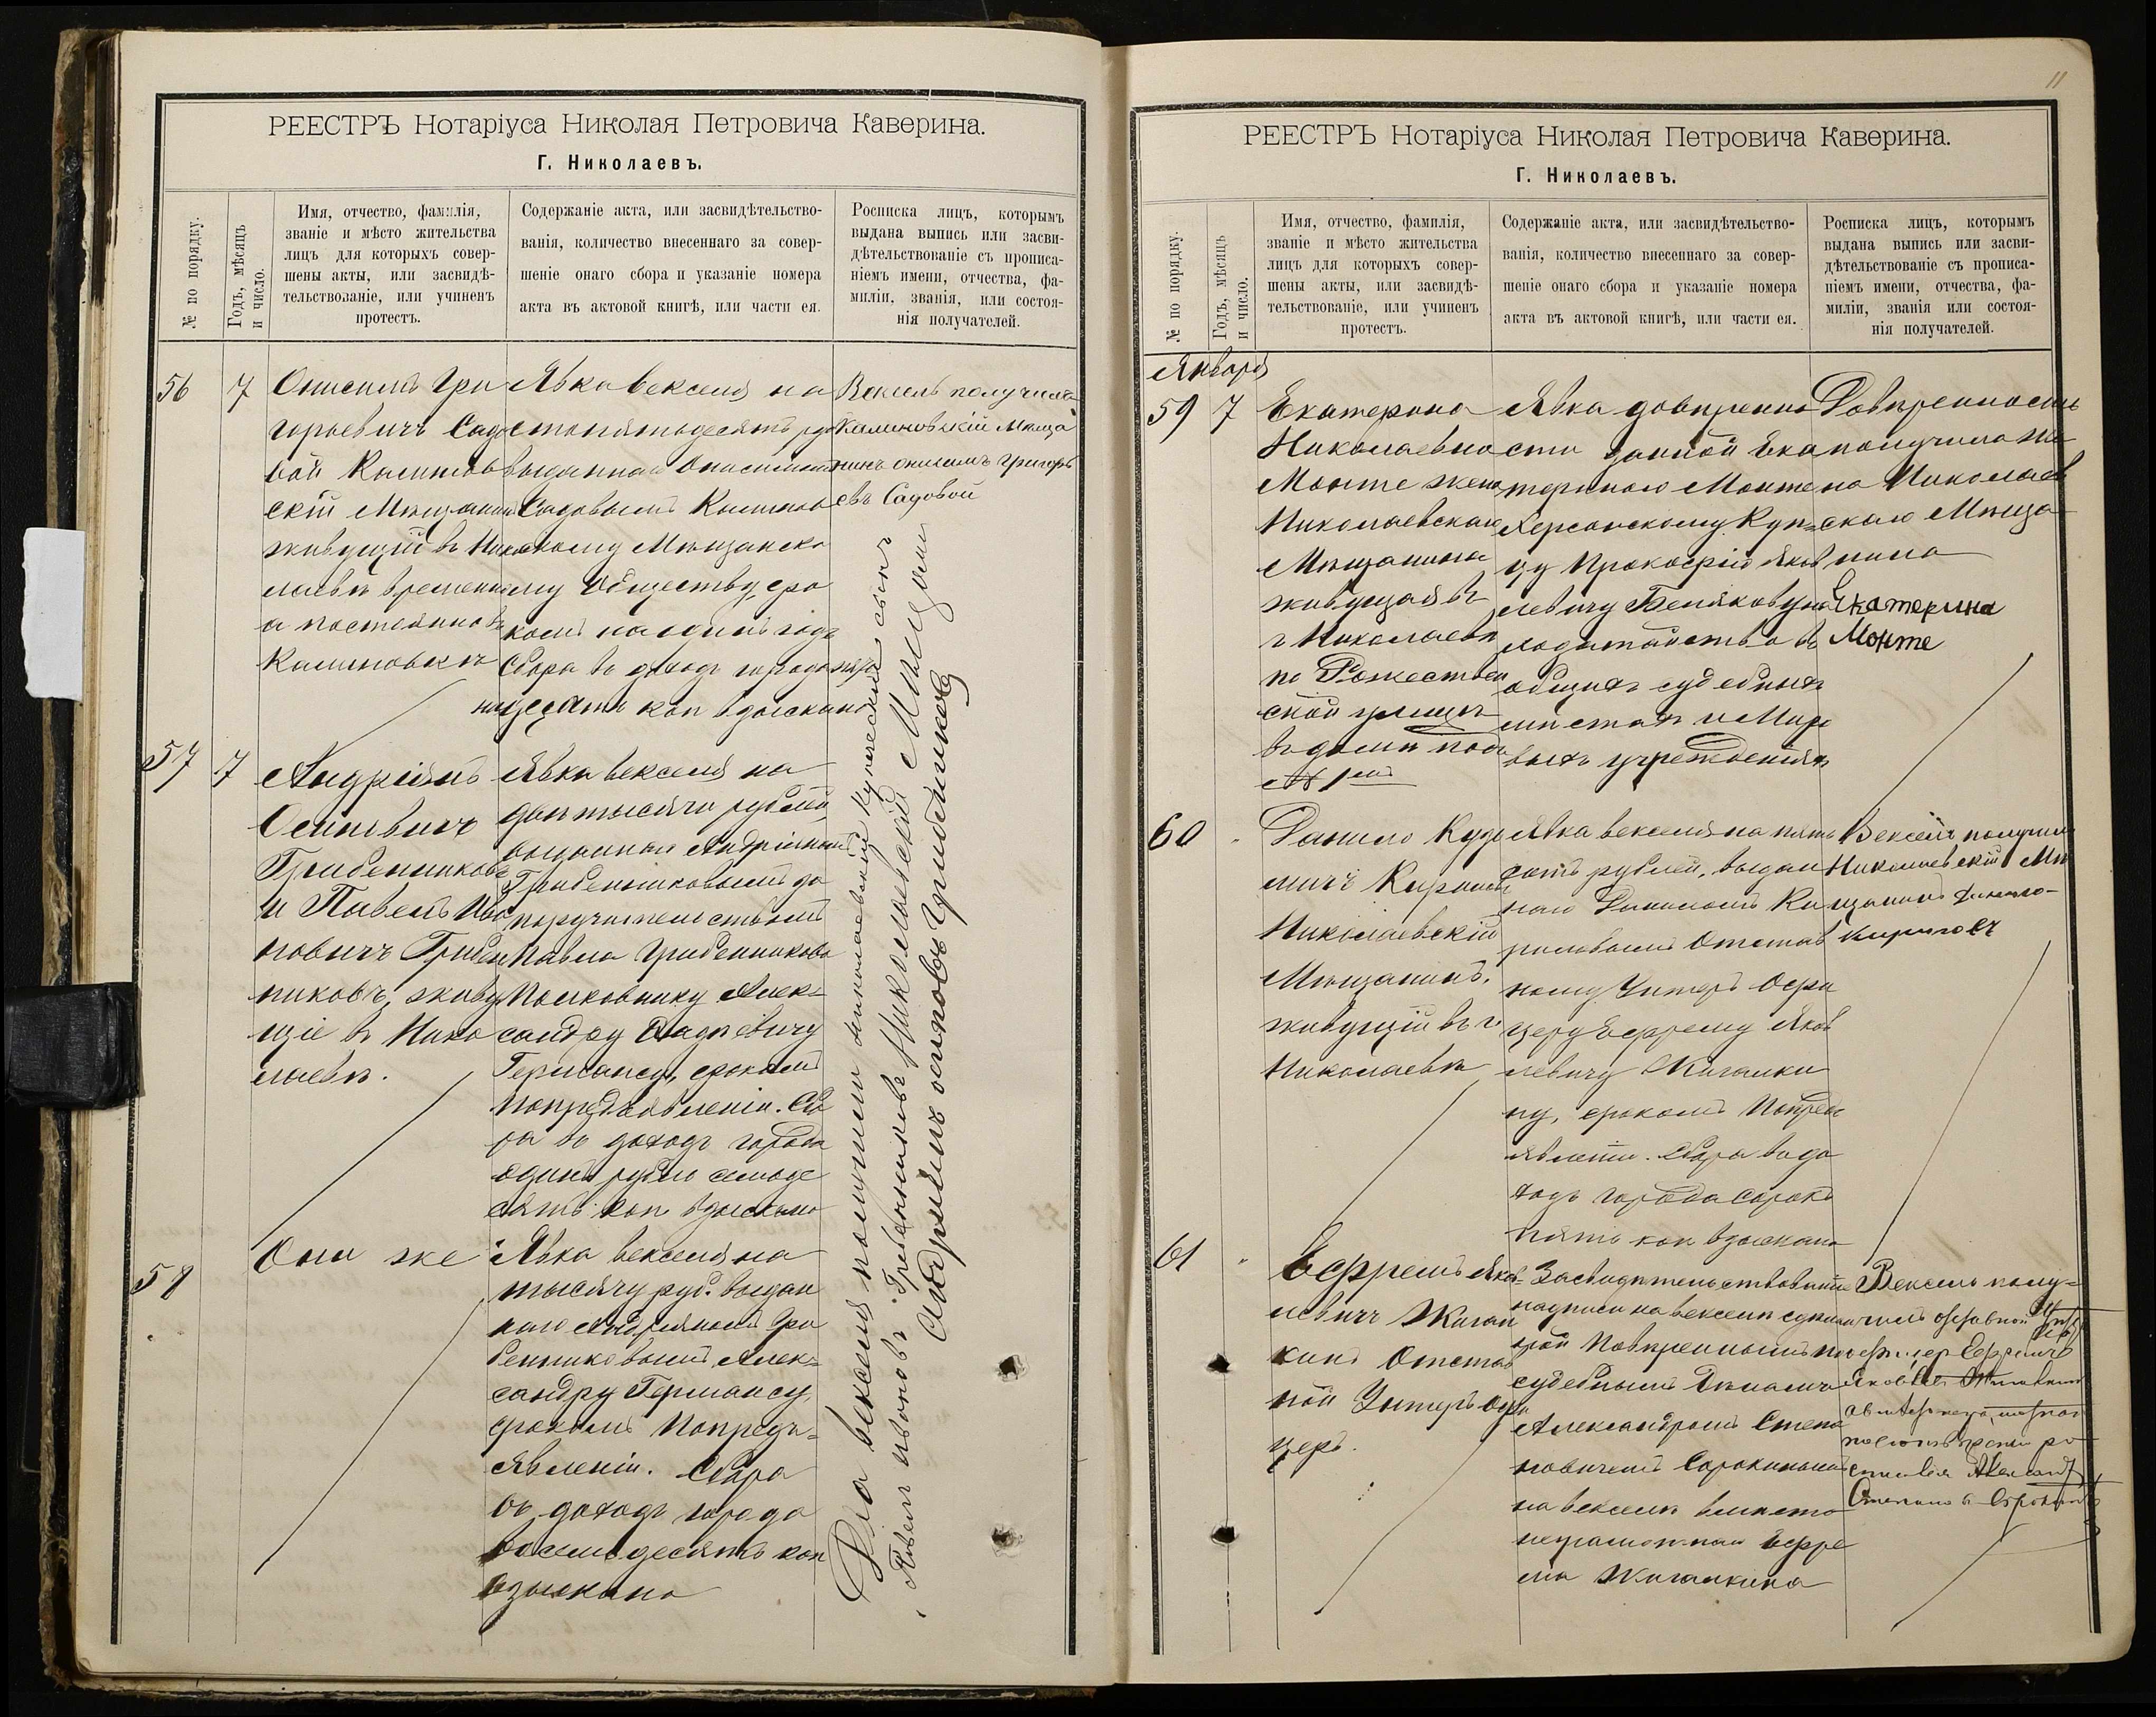 РЕЕСТРЪ Нотаріуса Николая Петровича Каверина.
Г. Николаевъ.
№ по порядку.
Годъ, мѣсяцъ
и число.
Имя, отчество, фамилія,
званіе и мѣсто жительства
лицъ для которыхъ совер-
шены акты, или засвидѣ-
тельствованіе, или учиненъ
протестъ.
Содержаніе акта, или засвидѣтельство-
ванія, количество внесеннаго за совер-
шеніе онаго сбора и указаніе номера
акта въ актовой книгѣ, или части ея.
Росписка лицъ, которымъ
выдана выпись или засви-
дѣтельствованіе съ прописа-
ніемъ имени, отчества, фа-
миліи, званія, или состоя-
нія получателей.
56
7
Онисимъ Гри
горьевичъ Садо
вой Калинов
скій Мѣщанинъ
живущій въ Нико
лаевѣ временно
а постоянно въ
Калиновкѣ
Явка векселя на
сто пятьдесятъ руб
выданнаго Онисимомъ
Садовымъ Калинов
скому Мѣщанско
му Обществу, сро
комъ на одинъ годъ
Сбора въ доходъ города
коп взыскано
Вексель получилъ
Калиновскій Мѣща
нинъ Онисимъ Григорь
евъ Садовой
57
7
Андріянъ
Осиповичъ
Гребенниковъ
и Павелъ Ива
новичъ Гребен
никовъ, живу
щіе въ Нико
лаевѣ.
Явка векселя на
двѣ тысячи рублей,
выданнаго Андріяномъ
Гребенниковымъ за
поручительствомъ
Павла Гребенникова
Полковнику Алек-
сандру
Германсу, срокомъ
по предъявленіи. Сбо
ра въ доходъ города
одинъ рубль
сятъ коп взыскано
58
Они же
Явка векселя на
тысячу руб. выдан
наго Андріяномъ Гре
бенниковымъ Алек-
сандру Германсу,
срокомъ по предъ-
явленіи. Сбора
въ доходъ города
восемьдесятъ коп
взыскано
Два векселя получили Николаевскій Купеческій сынъ
Павелъ Ивановъ Гребенниковъ Николаевскій Мещани
Андриянъ Осиповъ Гребенниковъ
11
РЕЕСТРЪ Нотаріуса Николая Петровича Каверина.
Г. Николаевъ.
№ по порядку.
Годъ, мѣсяцъ
и число.
Имя, отчество, фамилія,
званіе и мѣсто жительства
лицъ для которыхъ совер-
шены акты, или засвидѣ-
тельствованіе, или учиненъ
протестъ.
Содержаніе акта, или засвидѣтельство-
ванія, количество внесеннаго за совер-
шеніе онаго сбора и указаніе номера
акта въ актовой книгѣ, или части ея.
Росписка лицъ, которымъ
выдана выпись или засви-
дѣтельствованіе съ прописа-
ніемъ имени, отчества, фа-
миліи, званія или состоя-
нія получателей.
Января
59
7
Екатерина
Николаевна
Монте жена
Николаевскаго
Мѣщанина
живущая въ
г Николаевѣ
по Рожествен
ской улицѣ
въ домѣ подъ
№ 1мъ
Явка довѣренно
сти данной Ека
териною Монте
Херсонскому Куп-
цу Прокофію Яков
левичу Белякову на
ходатайство въ
общихъ судебныхъ
мѣстахъ и Миро
выхъ учрежденіяхъ
Довѣренность
получила же
на Николаев
скаго Мѣща
нина
Екатерина
Монте
60
"
Данило Кузь
мичъ Кириловъ
Николаевскій
Мѣщанинъ,
живущій въ г
Николаевѣ
Явка векселя на пять
сотъ рублей, выдан
наго Даниломъ Ки
риловымъ Отстав
ному Унтеръ Офи
церу Ефрему Яков
левичу Жигалки
ну, срокомъ по предъ
явленіи. Сбора въ до
ходъ города сорокъ
пять коп взыскано
Вексель получилъ
Николаевскій Мѣ
щанинъ Данило
Кириловъ
61
"
Ефремъ Яков-
левичъ Жигал
кинъ Отстав
ной Унтеръ Офи
церъ.
Засвидѣтельствованіе
надписи на векселѣ
Повѣреннымъ по
судебнымъ дѣламъ
Александромъ Степа
новичемъ Сорокинымъ
на векселѣ вмѣсто
неграмотнаго Ефре
ма Жигалкина
Вексель полу-
чилъ отставной
офицер Ефремъ
Яковлев Жигалкин